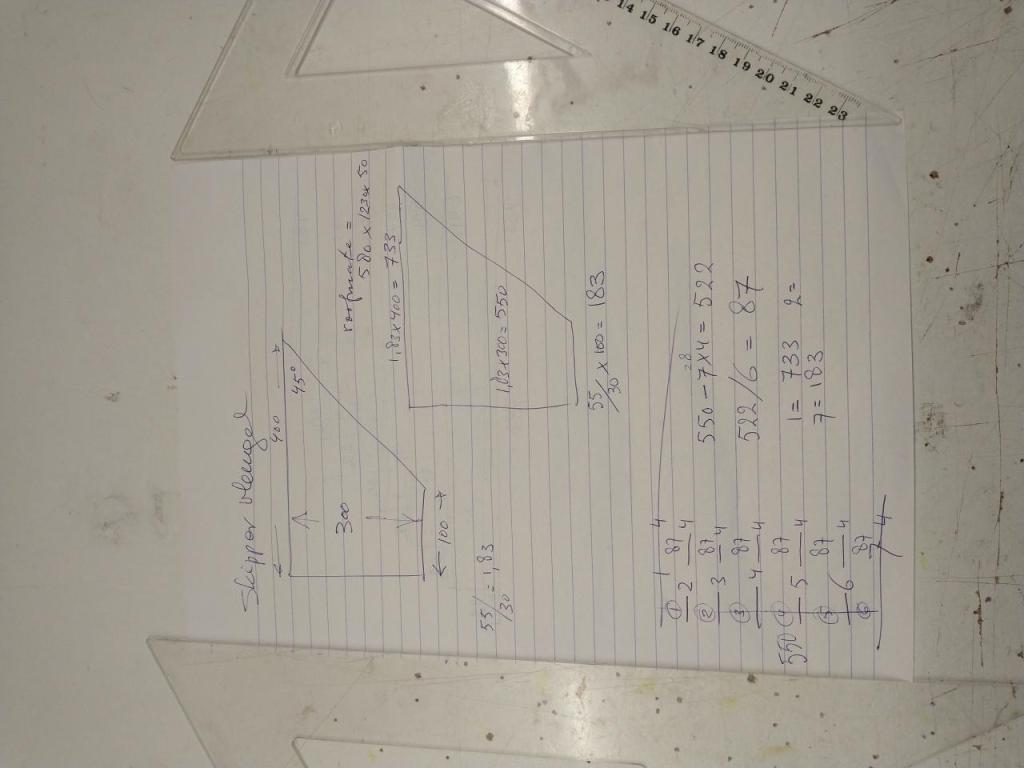 Skipper Menge
400
45°
300
100
55/30 = 1,83
=
580 x 1230 x 50
1,83 x 400 = 733
1,83 x 300 = 550
55/30 x 100 = 183
1 4
① 87
2 4
② 87
3 4
③ 87
4 4
④ 87
5 4
⑤ 87
6 4
⑥ 87
7 4
550
28
550 - 7x4 = 522
522/6 = 87
1 = 733 2 =
7 = 183
14 15 16 17 18 19 20 21 22 23